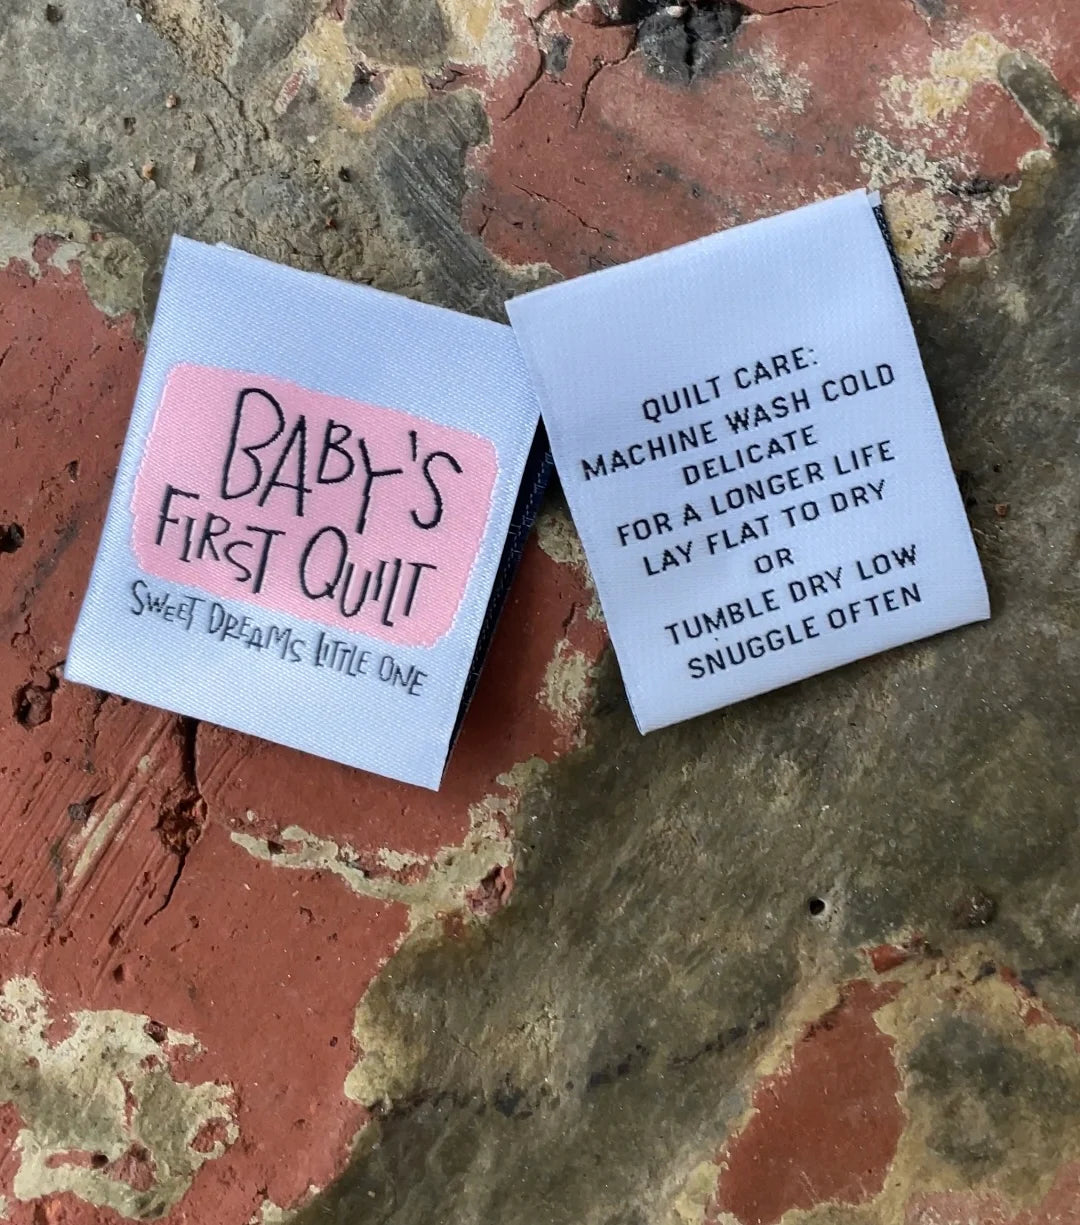 BABY'S
FIRST QUILT
SWEET DREAMS LITTLE ONE
QUILT CARE:
MACHINE WASH COLD
DELICATE
FOR A LONGER LIFE
LAY FLAT TO DRY
OR
TUMBLE DRY LOW
SNUGGLE OFTEN